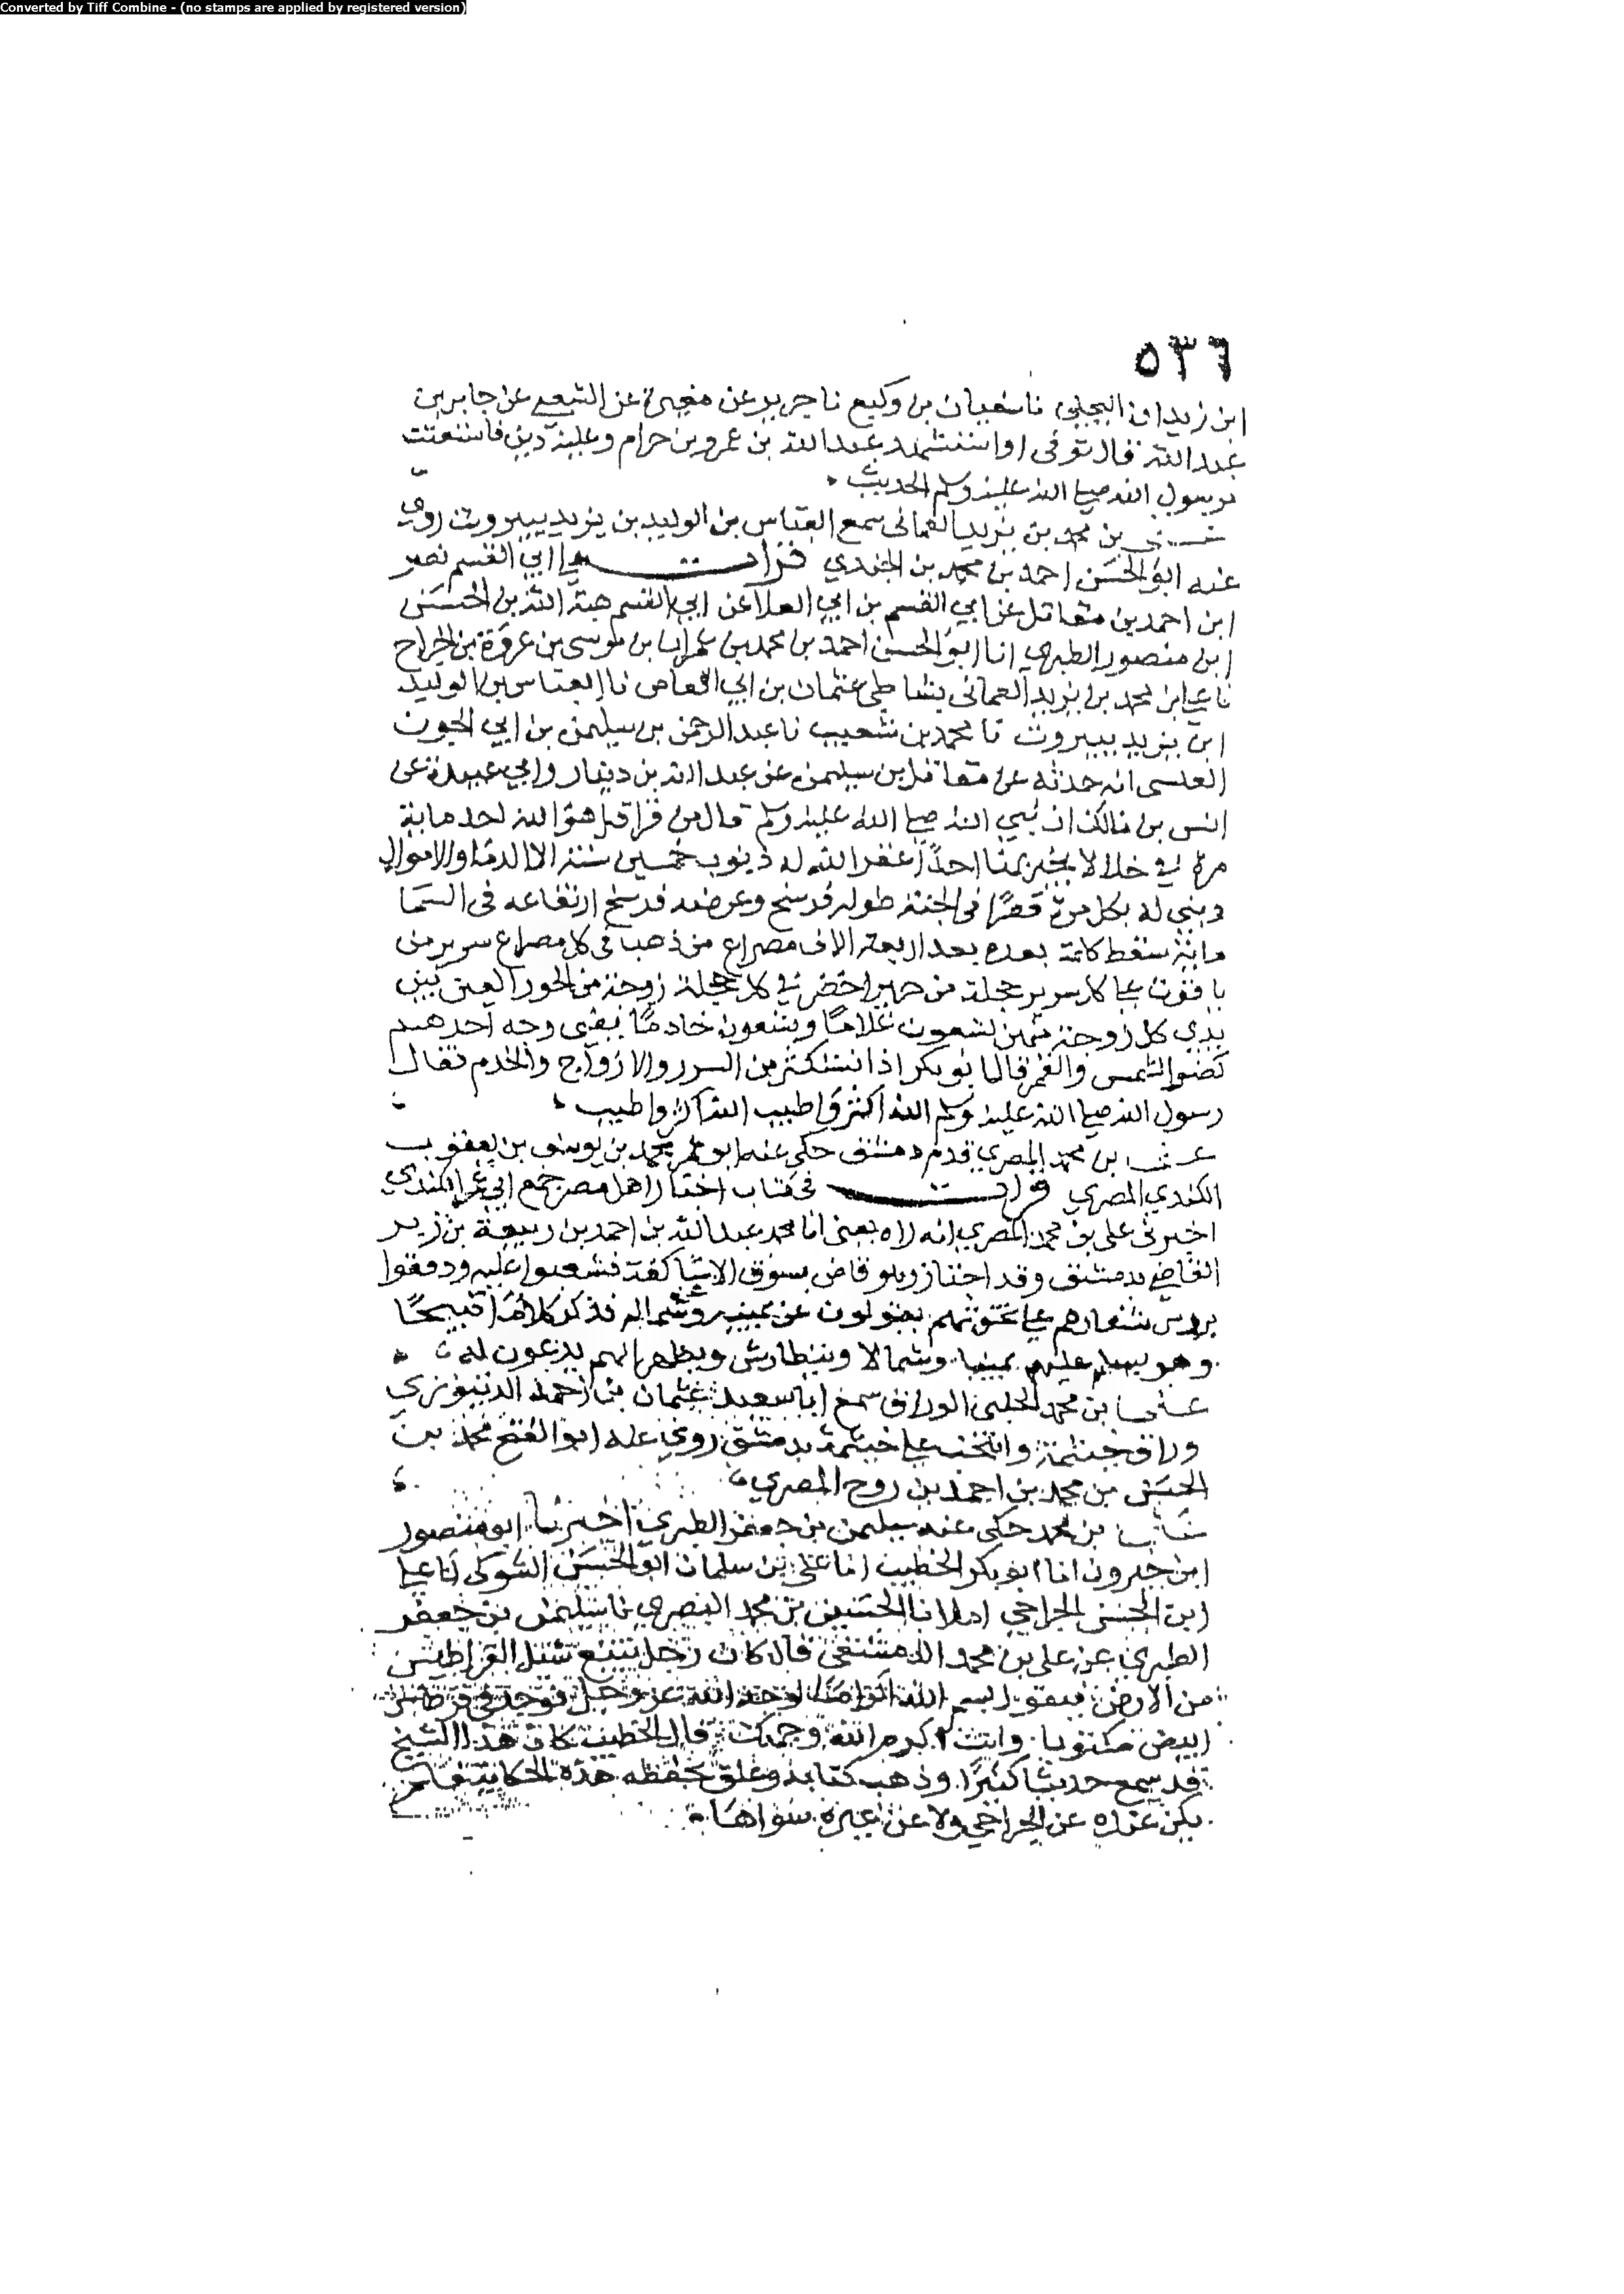 Converted by Tiff Combine - (no stamps are applied by registered version)
٥٣٦
ابن زيدان البجلي نا سفيان بن وكيع نا جرير عن مغيرة عن الشعبي عن جابر بن
عبد الله قال توفى او استشهد عبد الله بن عمرو بن حرام وعليه دين فاستعنت
برسول الله صلى الله عليه وسلم الحديث
علي بن محمد بن يزيد العماني سمع العباس بن الوليد بن يزيد ببيروت روى
عنه ابو الحسن احمد بن محمد بن الجندي قرات على ابي القسم نصر
ابن احمد بن مقاتل عن ابي القسم بن ابي العلا عن ابي القسم هبة الله بن الحسن
ابن منصور الطبري انا ابو الحسن احمد بن محمد بن عمران بن موسى بن عروة بن الجراح
نا علي بن محمد بن يزيد العماني بشاطي عثمان بن ابي العاص نا العباس بن الوليد
ابن يزيد ببيروت نا محمد بن شعيب نا عبد الرحمن بن سليمن بن ابي الجون
العنسي انه حدثه عن مقاتل بن سليمن عن عبد الله بن دينار وابي عبيدة عن
انس بن مالك ان نبي الله صلى الله عليه وسلم قال من قرا قل هو الله احد ماية
مرة في خلا لا يخبر بها احدا غفر الله له ذنوب خمسين سنة الا الدما والاموال
وبنى له بكل مرة قصرا في الجنة طوله فرسخ وعرضه فرسخ ارتفاعه في السما
بعده بعد اربعة الاف مصراع من ذهب في كل مصراع سرير من
ياقوت على كل سرير حجلة من حرير اخضر في كل حجلة زوجة من الحور العين بين
يدي كل زوجة منهن تسعون غلاما وتسعون خادما وجه احدهم
كضو الشمس والقمر قال ابو بكر اذا نستكثر من السرر والازواج والخدم فقال
رسول الله صلى الله عليه وسلم الله اكثر واطيب الله اكثر واطيب
علي بن محمد المصري قدم دمشق حكى عنه ابو عمر محمد بن يوسف بن يعقوب
الكندي المصري قرات في كتاب اخبار اهل مصر جمع ابي عمر الكندي
اخبرني علي بن محمد المصري انه راه يعني ابا محمد عبد الله بن احمد بن ربيعة بن زبر
القاضي بدمشق وقد اجتاز وهو قاض بسوق الاساكفة فشعبوا عليه ودفقوا
يقولون عن يمينه وشماله فذكر كلاما قبيحا
وهو يسلم عليهم يمينا وشمالا ويتطارش ويظهر انهم يدعون له
علي بن محمد الحلبي الوراق سمع ابا سعيد عثمان بن احمد الدينوري
وراق خيثمة وانتخب على خيثمة بدمشق روى عنه ابو الفتح محمد بن
الحسن بن محمد بن احمد بن روح المصري
علي بن محمد حكى عنه سليمن بن جعفر الطبري اخبرنا ابو منصور
ابن خيرون انا ابو بكر الخطيب انا علي بن سلمان ابو الحسن الشوكي نا علي
ابن الحسن الجراحي املا نا الحسين بن محمد البصري نا سليمن بن جعفر
الطبري عن علي بن محمد الدمشقي قال كان رجل يتتبع القراطيس
من الارض فيقول بسم الله اكراما لوجه الله عز وجل فوجد في قرطاس
ابيض مكتوبا وانت اكرم الله وجهك قال الخطيب كان هذا الشيخ
قد سمع حديثا كثيرا وذهب كتابه وعلق بحفظه هذه الحكاية فلم
يكن عنده عن الجراحي ولا عن غيره سواها